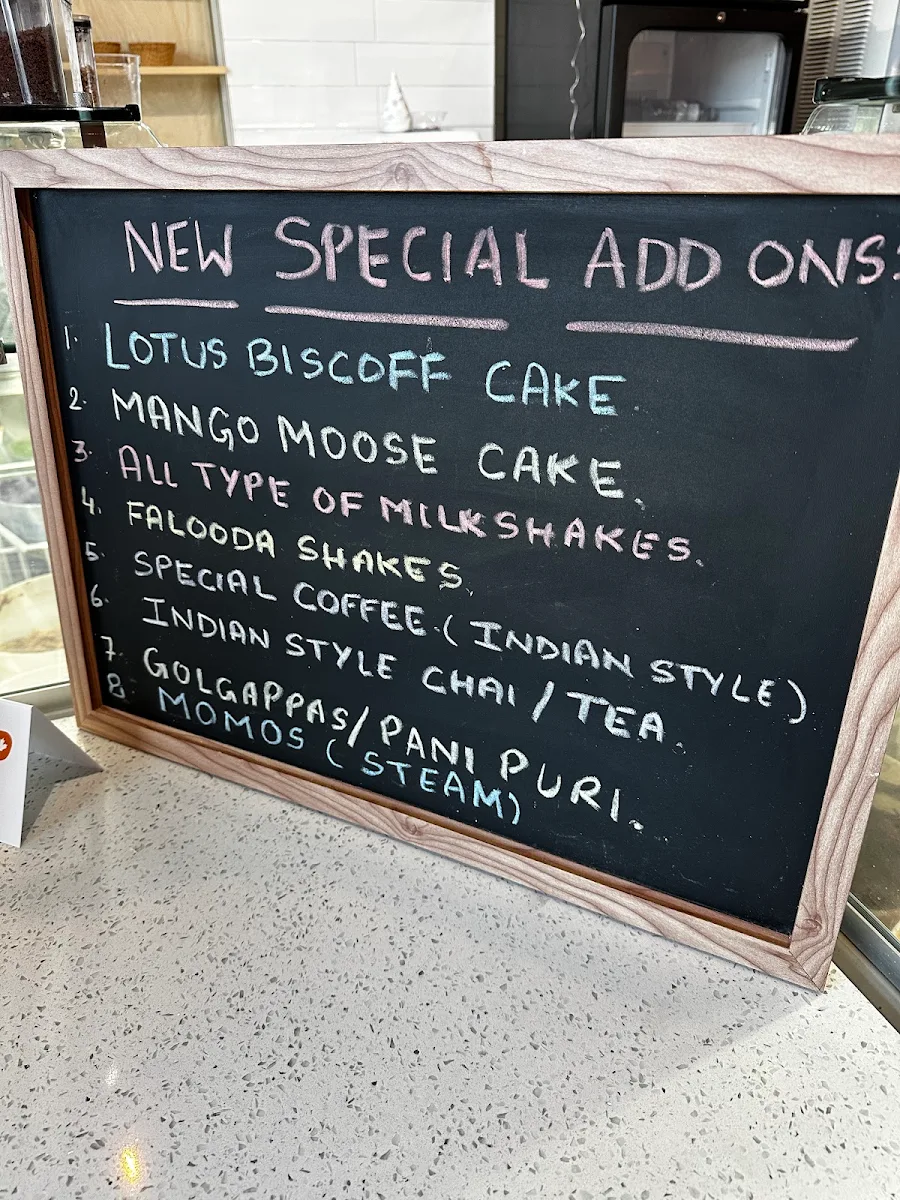 NEW SPECIAL ADD ONS:
1. LOTUS BISCOFF CAKE.
2. MANGO MOOSE CAKE.
3. ALL TYPE OF MILKSHAKES.
4. FALOODA SHAKES.
5. SPECIAL COFFEE.(INDIAN STYLE)
6. INDIAN STYLE CHAI/TEA.
7. GOLGAPPAS/PANI PURI.
8. MOMOS (STEAM)